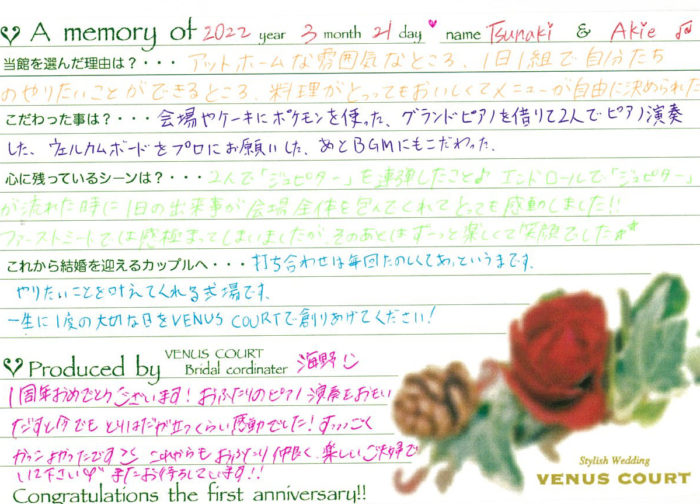 A memory of 2022 year 3 month 21 day name Tsunaki & Akie
当館を選んだ理由は？・・・ アットホームな雰囲気なところ、1日1組で自分たち
のやりたいことができるところ、料理がとってもおいしくてメニューが自由に決められた
こだわった事は？・・・会場やケーキにポケモンを使った、グランドピアノを借りて2人でピアノ演奏
した、ウェルカムボードをプロにお願いした、あとBGMにもこだわった。
心に残っているシーンは？・・・2人で「ジュピター」を連弾したこと♪ エンドロールで「ジュピター」
が流れた時に1日の出来事が会場全体を包んでくれてとっても感動しました!!
ファーストミートでは感極まってしまいましたが、そのあとはずーっと楽しくて笑顔でした
これから結婚を迎えるカップルへ・・・打ち合わせは毎回たのしくてあっというまです。
やりたいことを叶えてくれる式場です。
一生に1度の大切な日をVENUS COURTで創りあげてください!
Produced by VENUS COURT Bridal cordinater 海野
1周年おめでとうございます! おふたりのピアノ演奏をおもい
だすと今でもとりはだが立つくらい感動でした! すっっごく
かっこよかったです これからもおふたり仲良く、楽しいご夫婦で
いて下さい またお待ちしています!!
Congratulations the first anniversary!!
Stylish Wedding
VENUS COURT